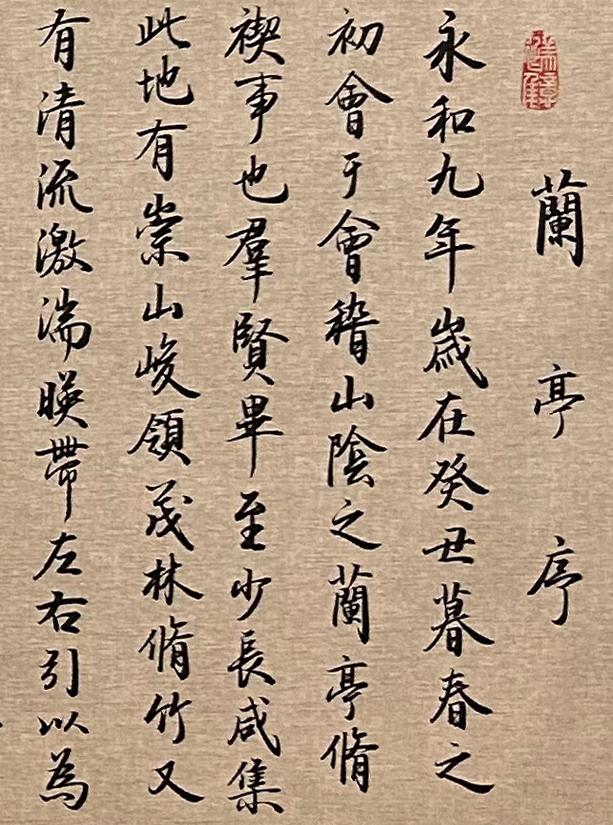 蘭亭序
永和九年歲在癸丑暮春之
初會于會稽山陰之蘭亭脩
禊事也羣賢畢至少長咸集
此地有崇山峻領茂林脩竹又
有清流激湍暎帶左右引以為